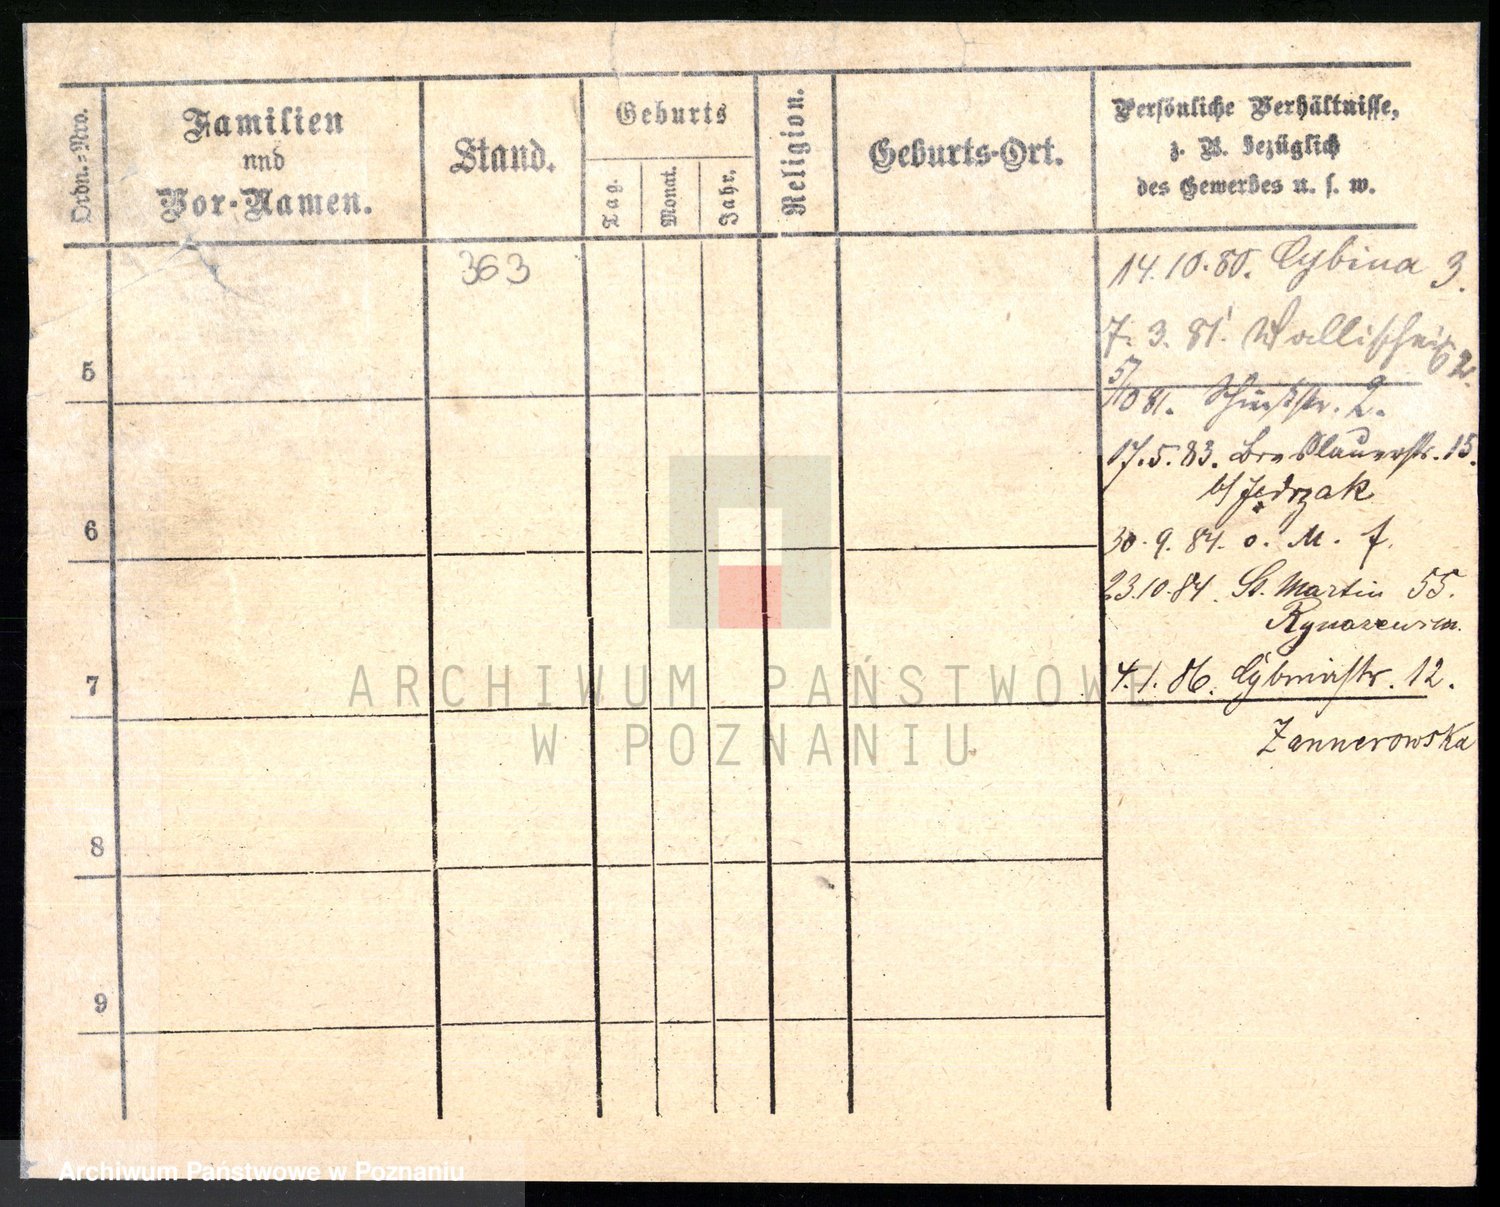 Ordn.=Nro.
Familien
und
Vor-Namen.
Stand.
Geburts
Tag.
Monat.
Jahr.
Religion.
Geburts-Ort.
Persönliche Verhältnisse,
z. B. bezüglich
des Gewerbes u. s. w.
363
14.10.80. Cybina 3.
7. 3. 81. Wallischei 62.
5
5/10 81. 2.
17.5.83. Breslauerstr. 15.
b/ Jędrzak
6
30.9.84. o. M. f.
23.10.84. St. Martin 55.
7
4.1.86. Cybinastr. 12.
Zannerowska
8
9
ARCHIWUM PAŃSTWOWE
W POZNANIU
Archiwum Państwowe w Poznaniu